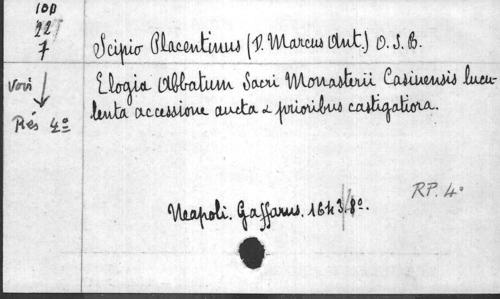 100
22
7
Scipio Placentinus (D. Marcus Ant.) O. S. B.
Voir
Elogia Abbatum Sacri Monasterii Casinensis lucu-
lenta accessione aucta & prioribus castigatiora.
Rés 4º
RP. 4º
Neapoli. Gaffarus. 1643. 8º.